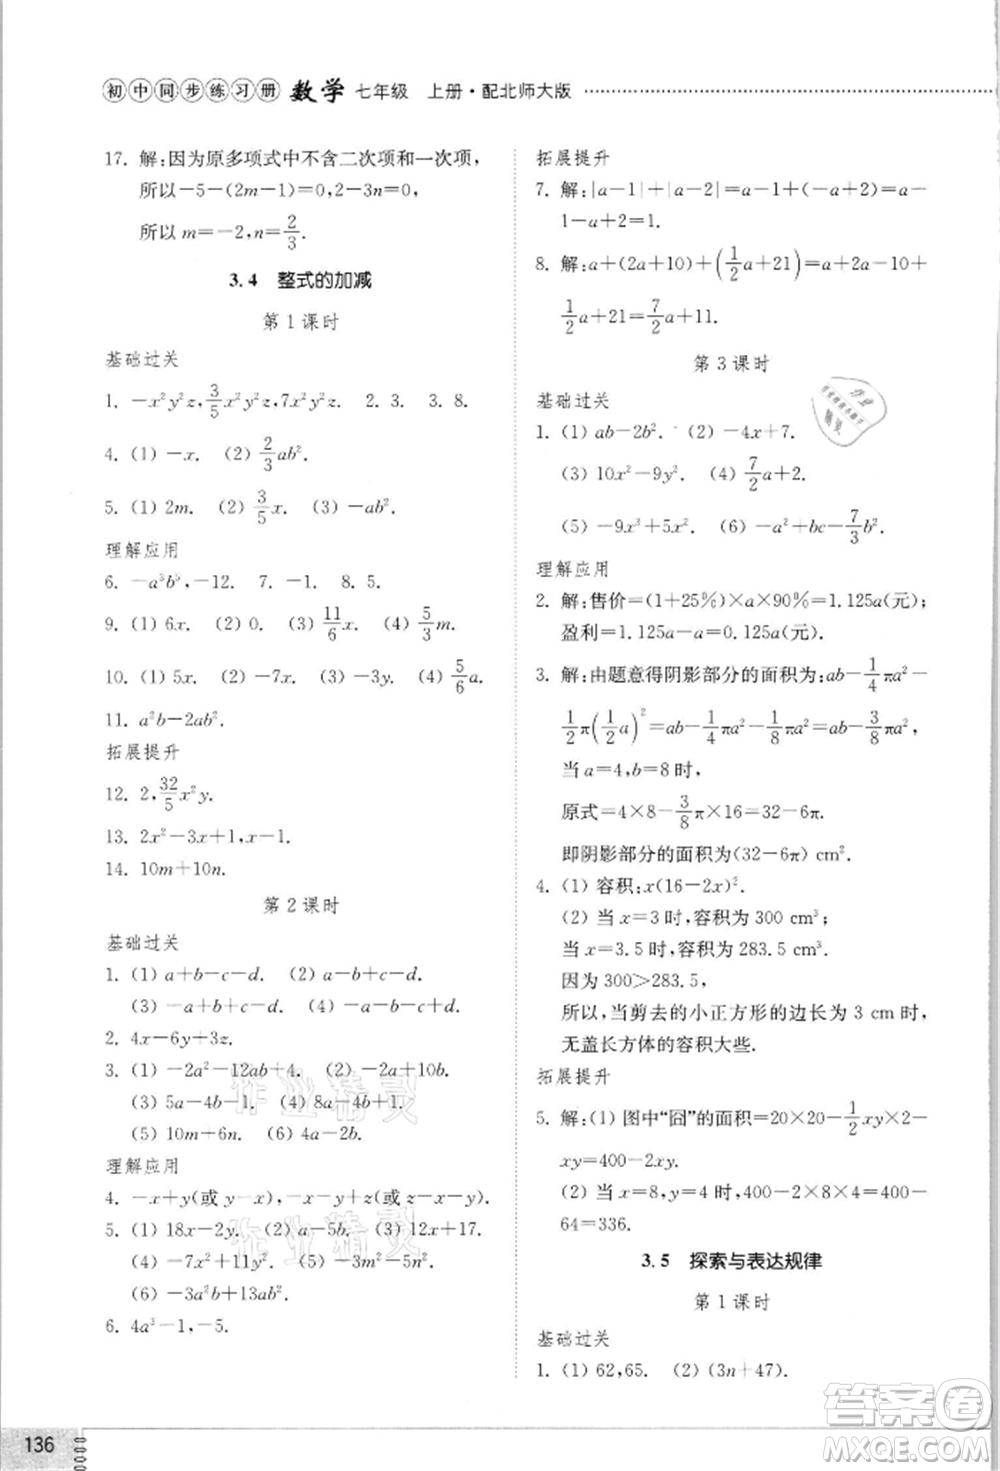 初中同步练习册 数学 七年级 上册·配北师大版
17. 解:因为原多项式中不含二次项和一次项,
所以-5-(2m-1)=0,2-3n=0,
所以 m=-2,n=2/3.
3.4 整式的加减
第1课时
基础过关
1. -x²y²z,3/5x²y²z,7x²y²z. 2. 3. 3. 8.
4. (1) -x. (2) 2/3ab².
5. (1) 2m. (2) 3/5x. (3) -ab².
理解应用
6. -a³b⁵,-12. 7. -1. 8. 5.
9. (1) 6x. (2) 0. (3) 11/6x. (4) 5/3m.
10. (1) 5x. (2) -a. (3) -3x. (4) 5/6a.
11. a²b-2ab².
拓展提升
12. 2,32/5x²y.
13. 2x²-3x+1,x-1.
14. 10m+10n.
第2课时
基础过关
1. (1) a+b-c-d. (2) a-b-c+d.
(3) -a+b+c-d. (4) -a-b+c-d.
2. 4x-6y+3z.
3. (1) -2a-12ab+4. (2) x-3.
(3) 5a-4b-1. (4) a+1.
(5) 10m+6n. (6) 4a-2b.
理解应用
4. -x+y(或 y-x),-x-y(或-y-x).
5. (1) 18x-2y. (2) a-5b. (3) 12x+17.
(4) -7x²+11. (5) -3m²-m-2.
(6) -3a²b+13ab².
6. 4a³-1,-5.
拓展提升
7. 解:|a-1|+|a-2|=a-1-(a-2)=a-
1-a+2=1.
8. 解:a+(2a+10)+(1/2a+21)=a+2a+10+
1/2a+21=7/2a+11.
第3课时
基础过关
1. (1) ab-2b². (2) -4x+7.
(3) 10x²-9y². (4) 7/2a+2.
(5) -9x³+5x². (6) -a²+bc-7/3b².
理解应用
2. 解:售价=(1+25%)×a×90%=1.125a(元);
盈利=1.125a-a=0.125a(元).
3. 解:由题意得阴影部分的面积为 ab-1/4πa²-
1/2π(1/2a)²=ab-1/4πa²-1/8πa²=ab-3/8πa²,
当 a=4,b=8 时,
原式=4×8-3/8π×16=32-6π.
即阴影部分的面积为(32-6π) cm².
4. (1) 容积:x(16-2x)².
(2) 当 x=3 时,容积为 300 cm³;
当 x=3.5 时,容积为 283.5 cm³.
因为 300>283.5,
所以,当剪去的小正方形的边长为 3 cm 时,
无盖长方体的容积大些.
拓展提升
5. 解:(1) 图中“囧”的面积=20×20-1/2xy×2-
xy=400-2xy.
(2) 当 x=8,y=4 时,400-2×8×4=400-
64=336.
3.5 探索与表达规律
第1课时
基础过关
1. (1) 62,65. (2) (3n+47).
136
作业精灵
作业精灵
答案圈
MXQE.COM